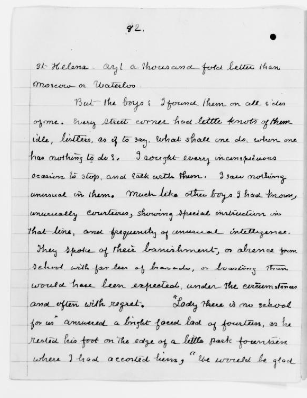 92.
St Helena. Ay! a thousand fold better than
Moscow or Waterloo
But the boys; I found them on all sides
of me. Every street corner had little knots of them
idle, listless, as if to say, what shall one do, when one
has nothing to do? I sought every inconspicuous
occasion to stop, and talk with them. I saw nothing
unusual in them. Much like other boys I had known,
unusually courteous, showing special instruction in
that line, and frequently of unusual intelligence.
They spoke of their banishment, or absence from
school with far less of bravado, or boasting than
would have been expected, under the circumstances
and often with regret. "Lady there is no school
for us" answered a bright faced lad of fourteen, as he
rested his foot on the edge of a little park fountain
where I had accosted him, "We would be glad